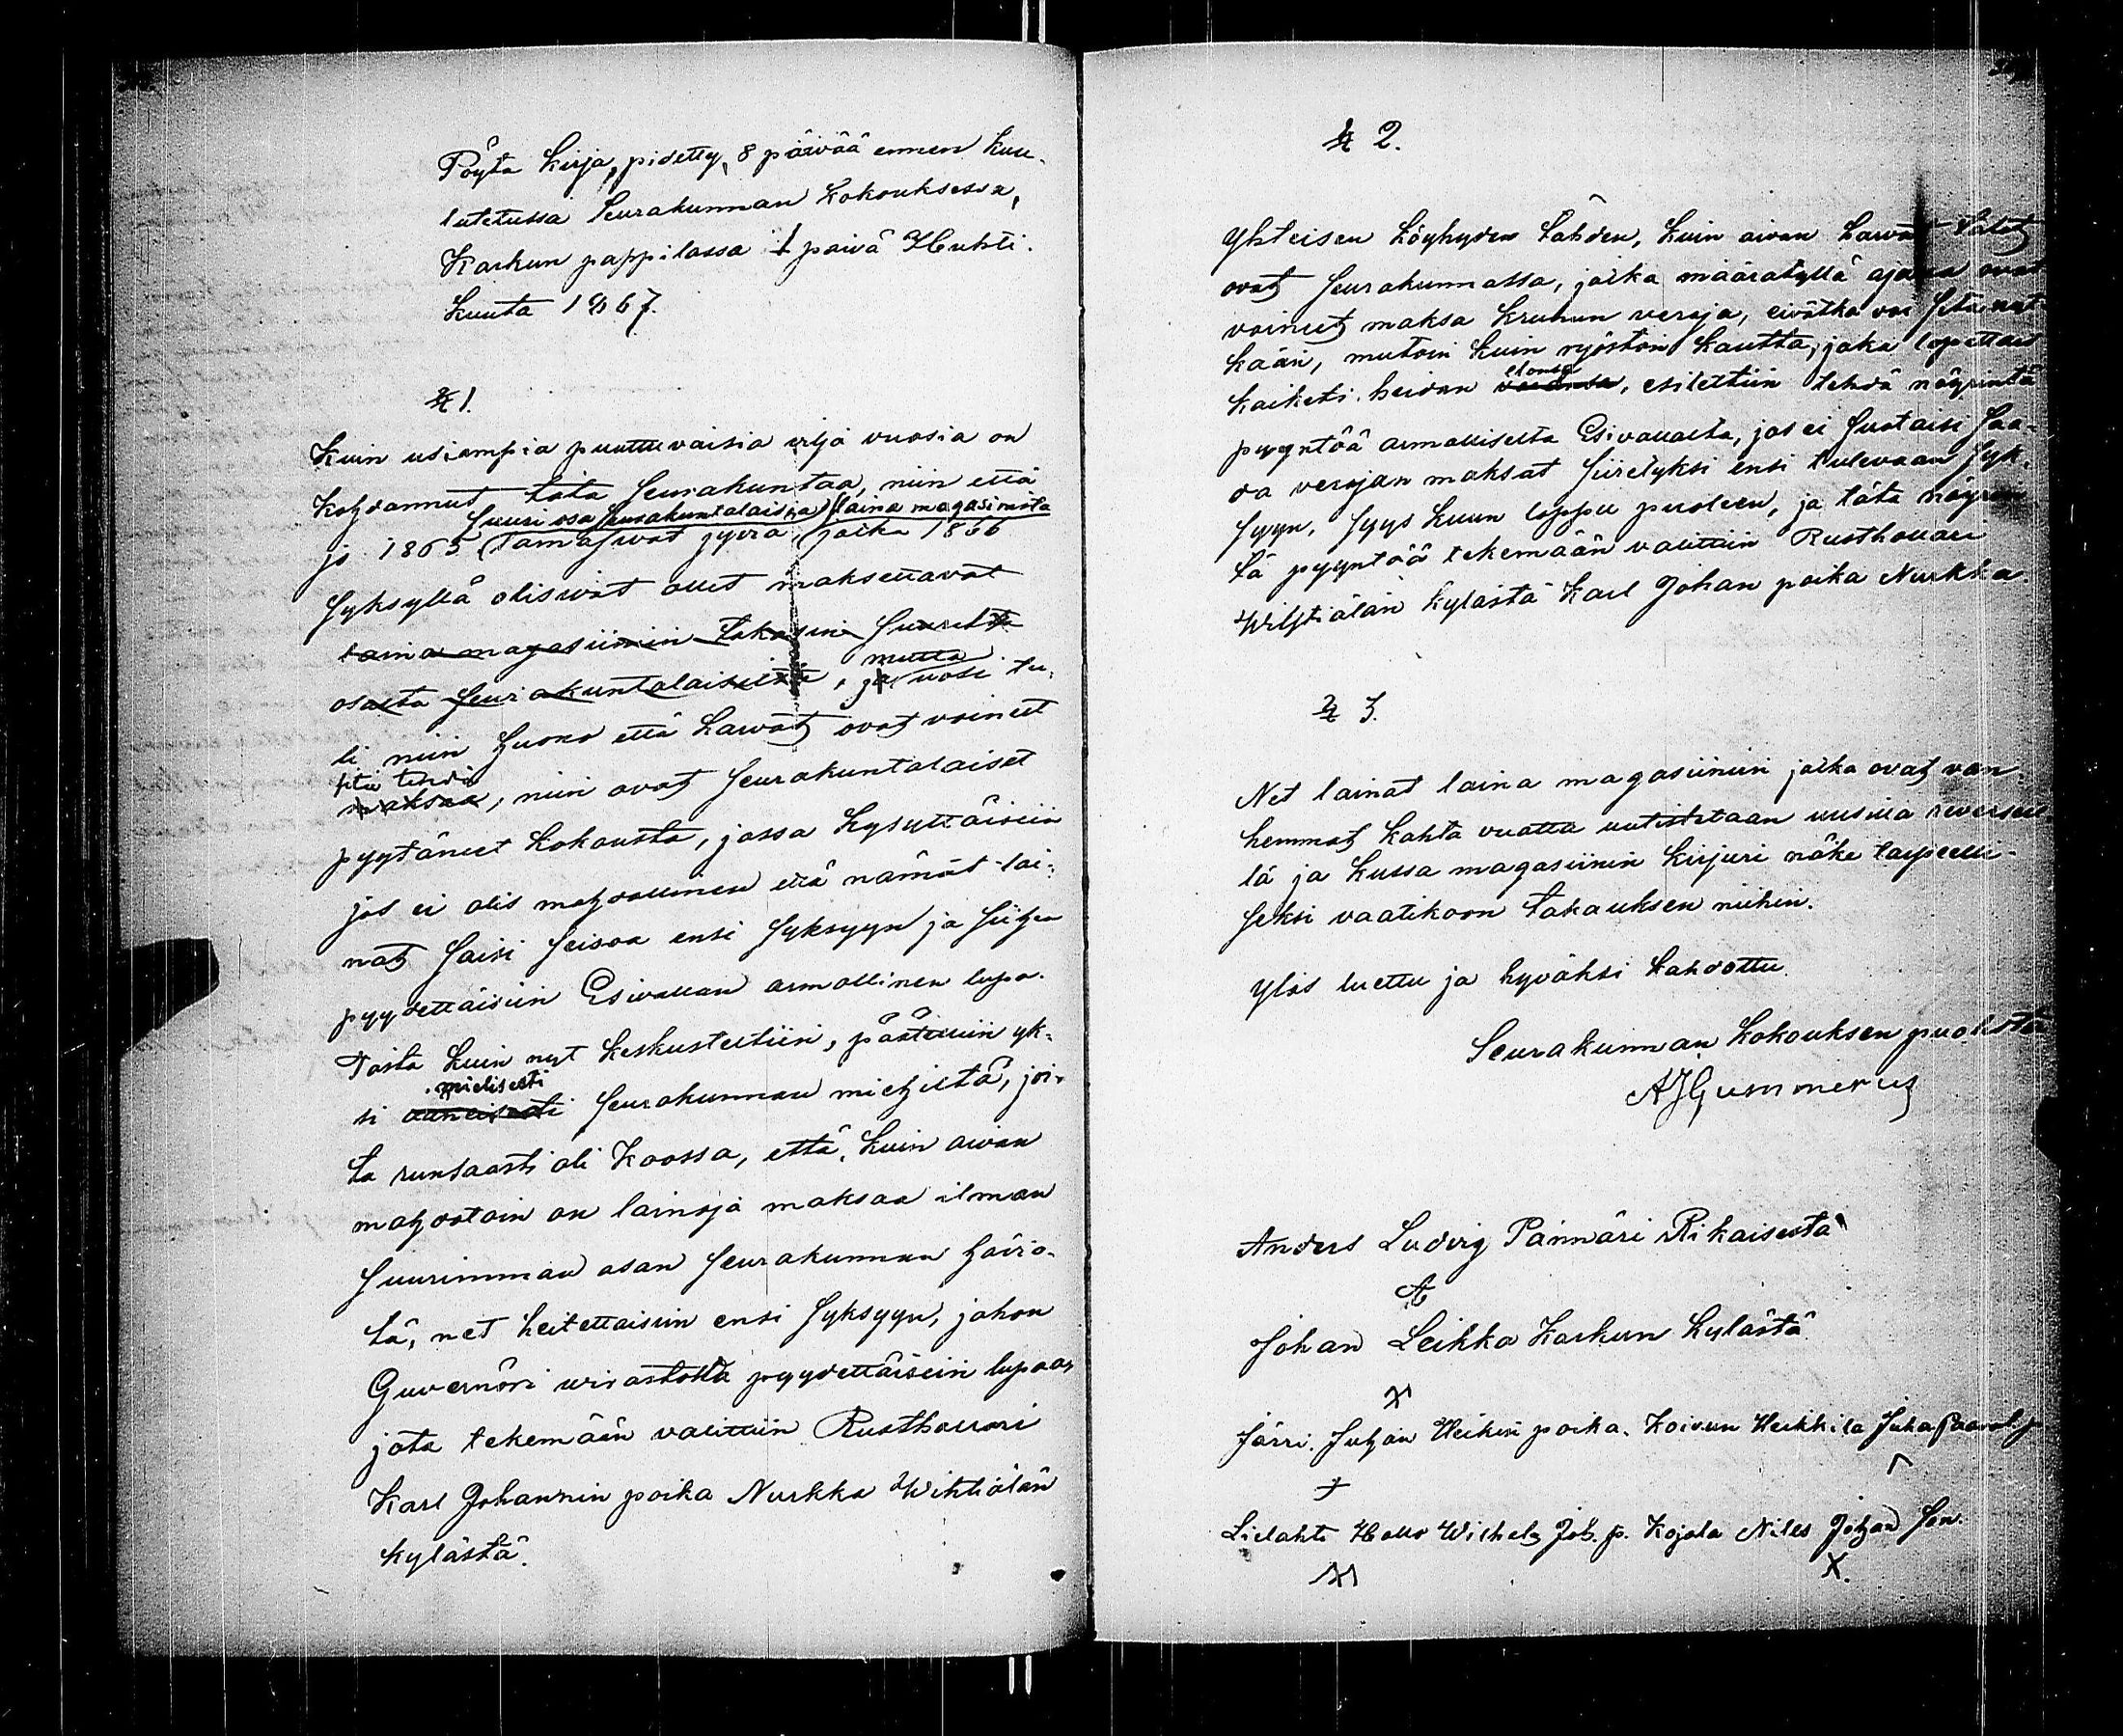 Pöyta Kirja, pidetty, 8 päivää ennen kuu-
lutetussa Seurakunnan Kokouksessa,
Karkun pappilassa 1 päivä Huhti.
Kuuta 1867.
§ 1.
Kuin usiampia puuttuvaisia vilja vuosia on
kohdannut täta Seurakuntaa, niin että
Suuri osa Seurakuntalaisia laina magasinista
jo 1865 lainasivat jyviä joita 1866
Syksyllä olisivat ollet maksettavat
laina magasiinin takasin Suurelta
osalta Seurakuntalaisilta, ja vuosi tu-
mutta
li niin huono että harvat ovat voineet
sitä tehdä
maksaa, niin ovat Seurakuntalaiset
pyytäneet Kokousta, jossa kysyttäisiin
jos ei olis mahdollinen että nämät lai-
nat Saisi Seisoa ensi Syksyyn ja Siihen
pyydettäisiin Esivallan armollinen lupa.
Tästa kuin nyt keskusteltiin, päätettiin yk-
mielisesti
si äänisesti Seurakunnan miehiltä, joi-
ta runsaasti oli Koossa, että, kuin aivan
mahdotoin on lainoja maksaa ilman
Suurimman osan Seurakunnan häviö-
tä, net heitettäisiin ensi Syksyyn, johon
Guvernöri virastolta pyydettäisiin lupaa,
jota tekemään valittiin Rusthollari
Karl Johannin poika Nurkka Wihtiälän
kylästä.
§ 2.
Yhteisen Köyhyden tähden, kuin aivan harvat talot
ovat Seurakunnassa, jotka määrätyllä ajalla ovat
voineet maksa kruunun veroja, eivätkä voi sitä nyt
kään, mutoin kuin ryöstön kautta, joka lopettaa
elonsa
kaiketi heidän, esitettiin tehdä nöyrintä
pyyntöä armolliselta Esivallalta, jos ei Suotaisi Saa-
da verojen maksat Siiretyksi ensi tulevaan Syk-
Syyn, Syys kuun loppu puoleen, ja täta nöyrin-
tä pyyntöä tekemään valittiin Rusthollari
Wihtiälän kylästä Karl Johan poika Nurkka
§ 3.
Net lainat laina magasiiniin jotka ovat van-
hemmat kahta vuotta uutistetaan uusilla reversei-
lä ja kussa magasiinin kirjuri näke tarpeelli-
seksi vaatikoon takauksen niihin.
Ylös luettu ja hyväksi tahdottu.
Seurakunnan Kokouksen puolesta
AJGummerus
Anders Ludvig Pännäri Rikaisesta
Johan Leikka Karkun kylästä
Järri. Juhan Heikin poika. Koivun Heikkila Juha
Lielahti Wilhelm Joh. p. Kojola Niles Johan
X.